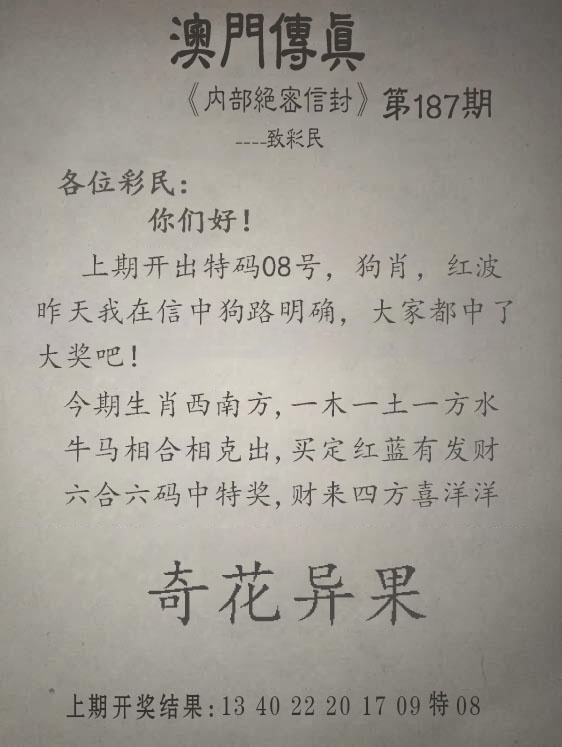 澳門傳眞
《内部絕密信封》第187期
----致彩民
各位彩民：
你们好！
上期开出特码08号，狗肖，红波
昨天我在信中狗路明确，大家都中了
大奖吧！
今期生肖西南方,一木一土一方水
牛马相合相克出,买定红蓝有发财
六合六码中特奖,财来四方喜洋洋
奇花异果
上期开奖结果:13 40 22 20 17 09 特 08